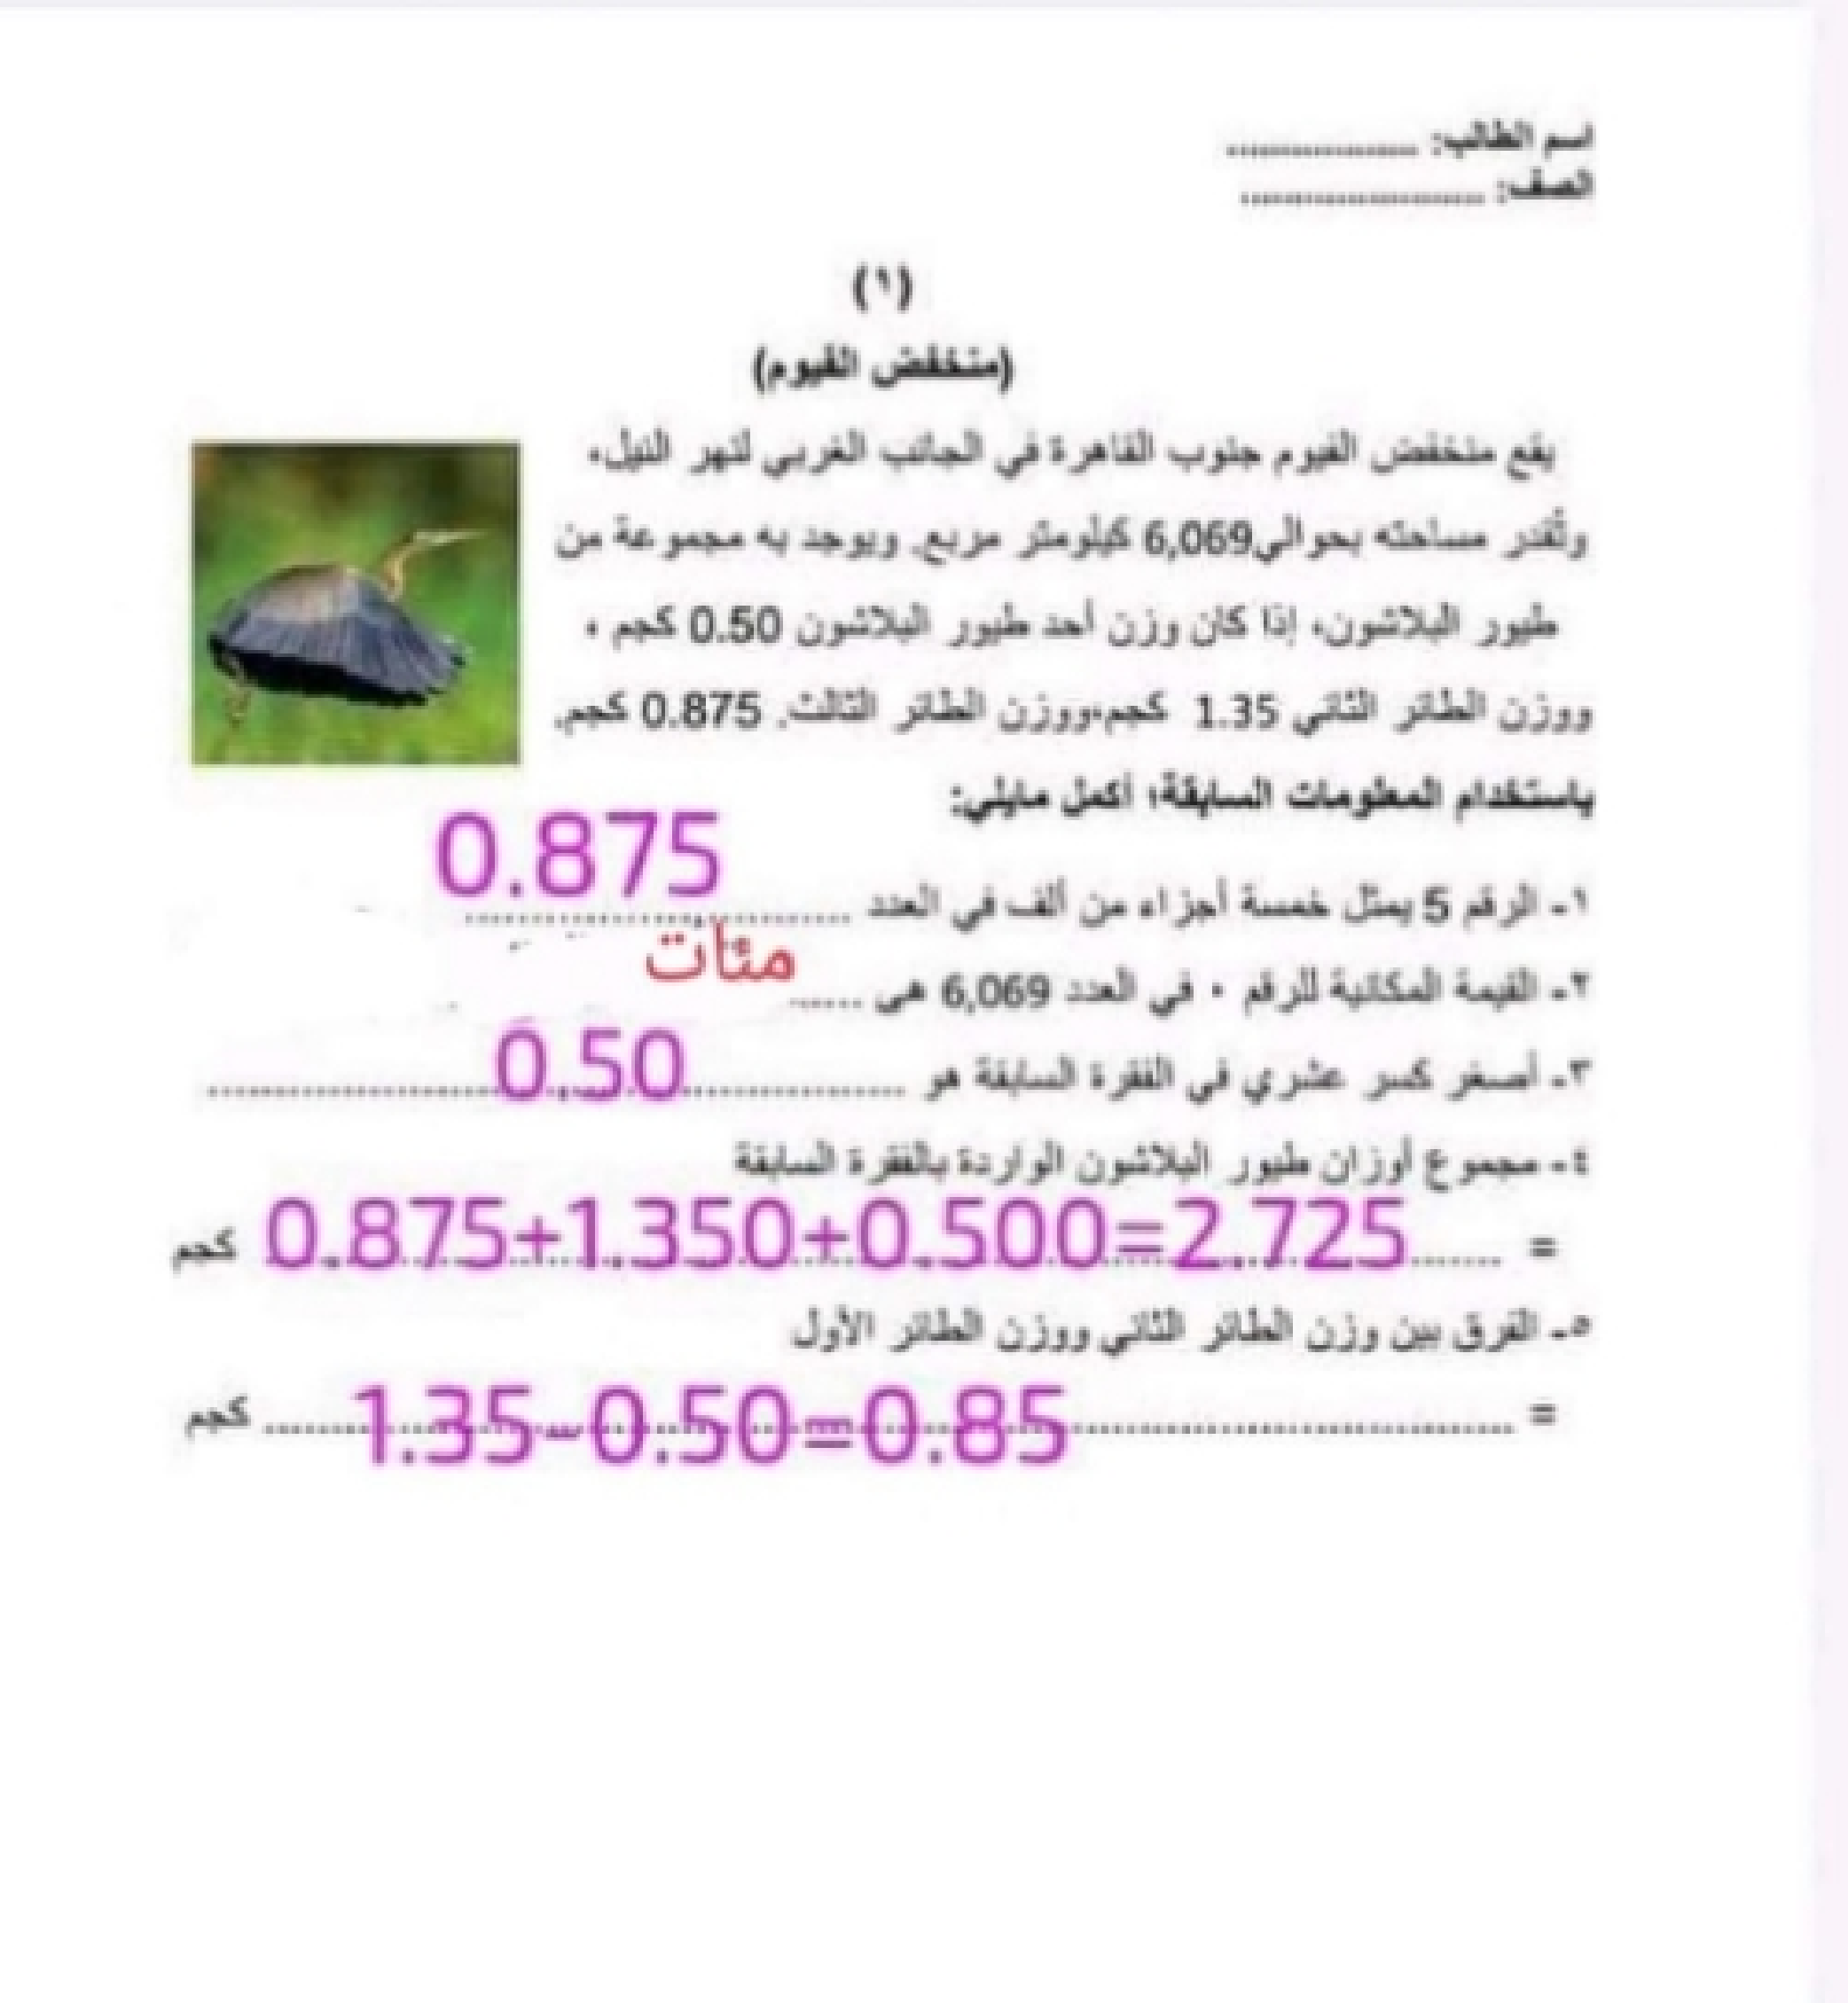 اسم الطالب: ..................
الصف: .......................
(١)
(منخفض الفيوم)
يقع منخفض الفيوم جنوب القاهرة في الجانب الغربي لنهر النيل،
وتُقدر مساحته بحوالي6,069 كيلومتر مربع. ويوجد به مجموعة من
طيور البلاشون، إذا كان وزن أحد طيور البلاشون 0.50 كجم ،
ووزن الطائر الثاني 1.35 كجم،ووزن الطائر الثالث. 0.875 كجم.
باستخدام المعلومات السابقة؛ أكمل مايلي:
١- الرقم 5 يمثل خمسة أجزاء من ألف في العدد 0.875
٢- القيمة المكانية للرقم ٠ في العدد 6,069 هى ...... مئات
٣- أصغر كسر عشري في الفقرة السابقة هو 0.50
٤- مجموع أوزان طيور البلاشون الواردة بالفقرة السابقة
= 0.875+1.350+0.500=2.725 كجم
٥- الفرق بين وزن الطائر الثاني ووزن الطائر الأول
= 1.35-0.50=0.85 كجم